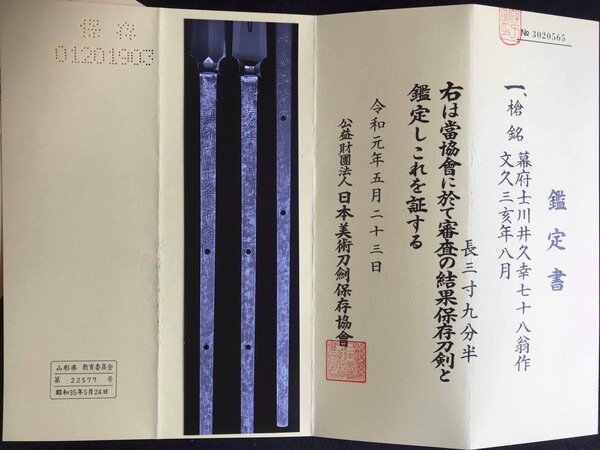 № 3020565
鑑定書
一、槍 銘 幕府士川井久幸七十八翁作
文久三亥年八月
長三寸九分半
右は當協會に於て審査の結果保存刀剣と
鑑定しこれを証する
令和元年五月二十三日
公益財團法人 日本美術刀劍保存協會
保存
01201903
山形県 教育委員会
第 22577 号
昭和35年5月24日